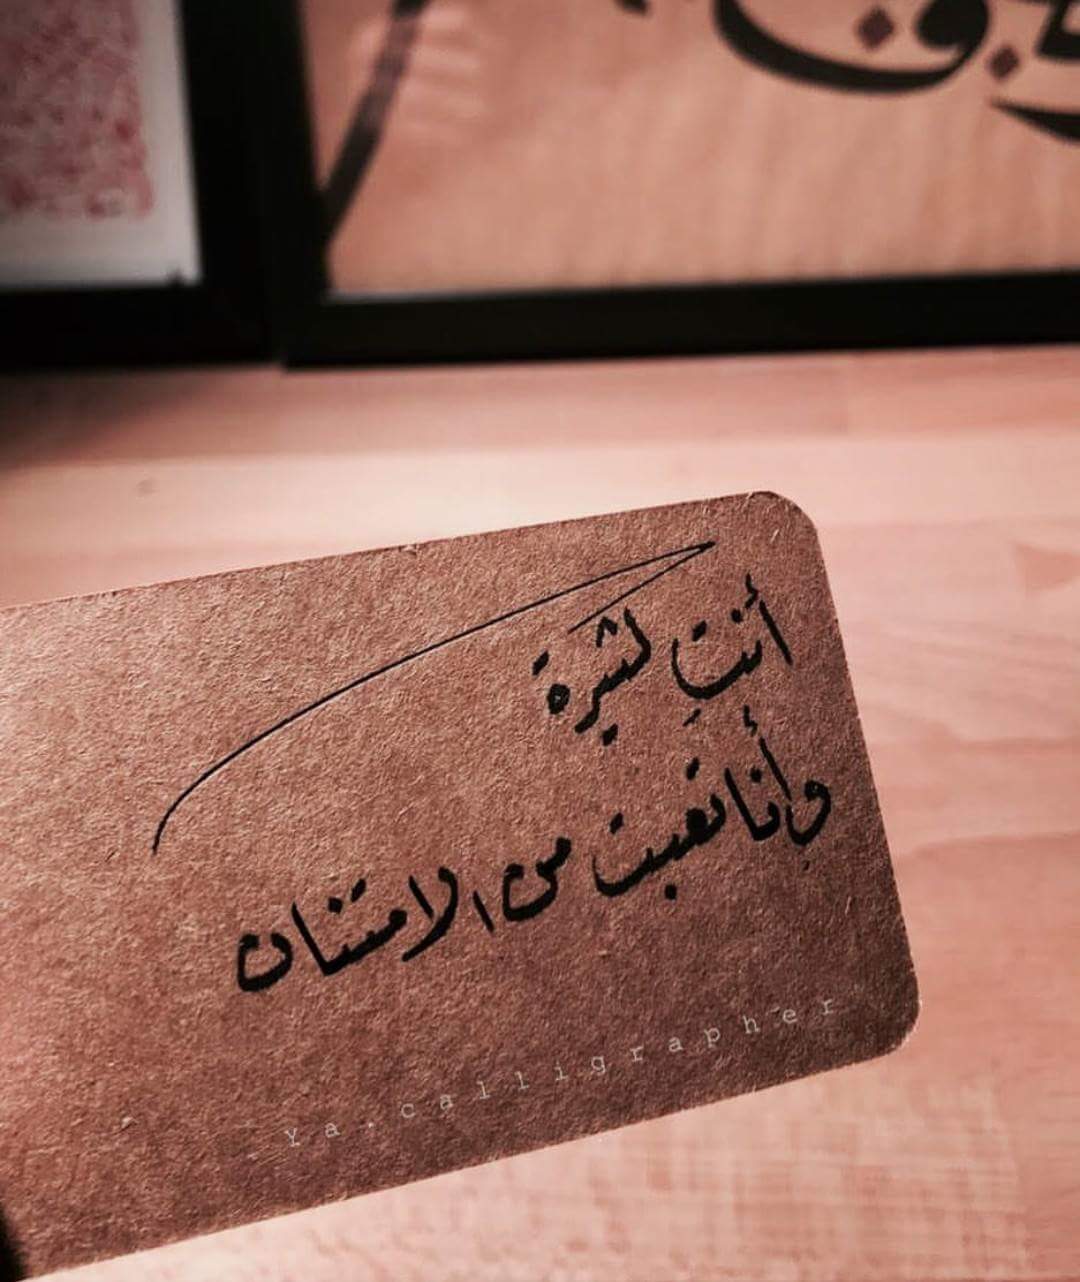 أنتِ كثيرة
وأنا تعبت من الامتنان
Ya.calligrapher